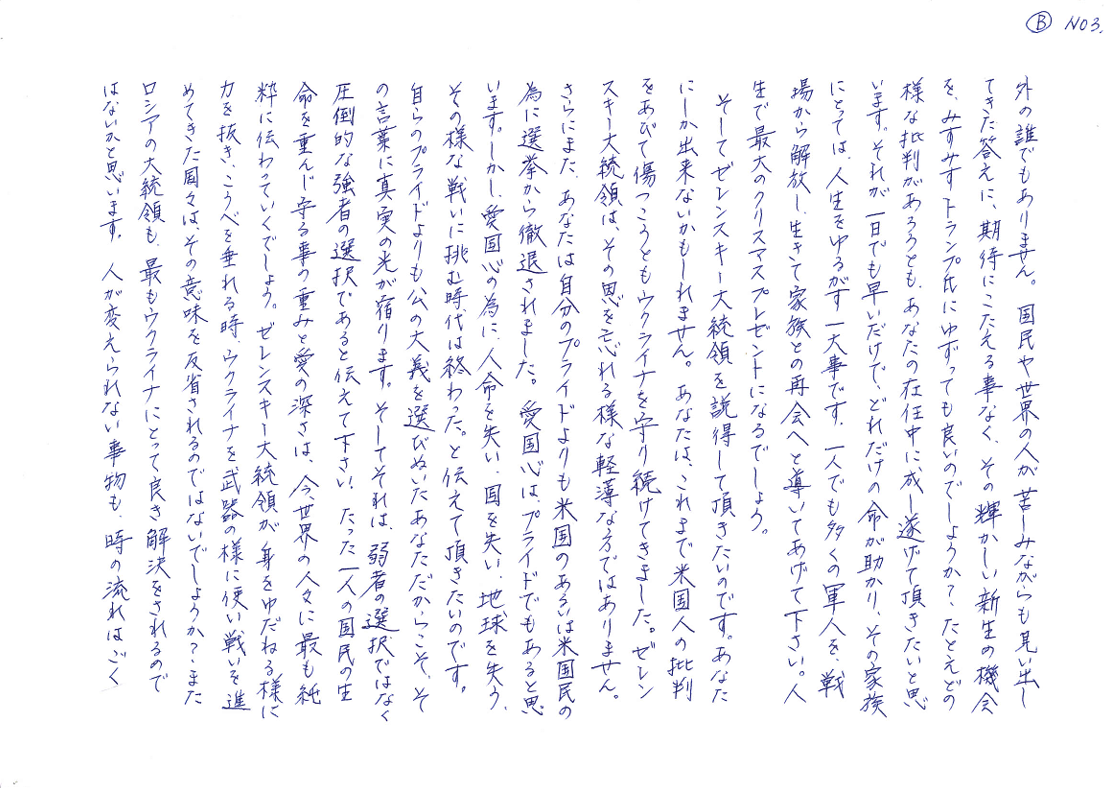 Ⓑ NO3.
外の誰でもありません。国民や世界の人が苦しみながらも見い出し
てきた答えに、期待にこたえる事なく、その輝かしい新生の機会
を、みすみすトランプ氏にゆずっても良いのでしょうか?、たとえどの
様な批判があろうとも、あなたの在任中に成し遂げて頂きたいと思
います。それが一日でも早いだけで、どれだけの命が助かり、その家族
にとっては、人生をゆるがす一大事です。一人でも多くの軍人を、戦
場から解放し、生きて家族との再会へと導いてあげて下さい。人
生で最大のクリスマスプレゼントになるでしょう。
そしてゼレンスキー大統領を説得して頂きたいのです。あなた
にしか出来ないかもしれません。あなたは、これまで米国人の批判
をあびて傷つこうともウクライナを守り続けてきました。ゼレン
スキー大統領は、その恩を忘れる様な軽薄な方ではありません。
さらにまた、あなたは自分のプライドよりも米国のあるいは米国民の
為に選挙から徹退されました。愛国心は、プライドでもあると思
います。しかし、愛国心の為に、人命を失い、国を失い、地球を失う、
その様な戦いに挑む時代は終わった。と伝えて頂きたいのです。
自らのプライドよりも公の大義を選びぬいたあなただからこそ、そ
の言葉に真実の光が宿ります。そしてそれは、弱者の選択ではなく
圧倒的な強者の選択であると伝えて下さい。たった一人の国民の生
命を重んじ守る事の重みと愛の深さは、今、世界の人々に最も純
粋に伝わっていくでしょう。ゼレンスキー大統領が身をゆだねる様に
力を抜き、こうべを垂れる時、ウクライナを武器の様に使い戦いを進
めてきた国々は、その意味を反省されるのではないでしょうか?、また
ロシアの大統領も、最もウクライナにとって良き解決をされるので
はないかと思います。人が変えられない事物も、時の流れはごく